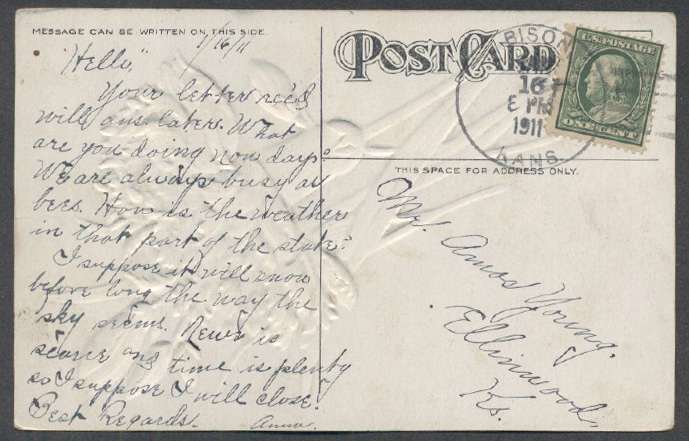 MESSAGE CAN BE WRITTEN ON THIS SIDE.
1/16/11
"Hello,"
Your letter rec'd
will ans. later. What
are you doing now days?
We are always busy as
bees. How is the weather
in that part of the state?
I suppose it will snow
before long the way the
sky seems. News is
scarce and time is plenty
so I suppose I will close.
Best Regards. Anna.
POST CARD
BISON
16
8 PM
1911
KANS.
U.S. POSTAGE
ONE CENT
THIS SPACE FOR ADDRESS ONLY.
Mr. Amos Young,
Ellinwood,
Ks.